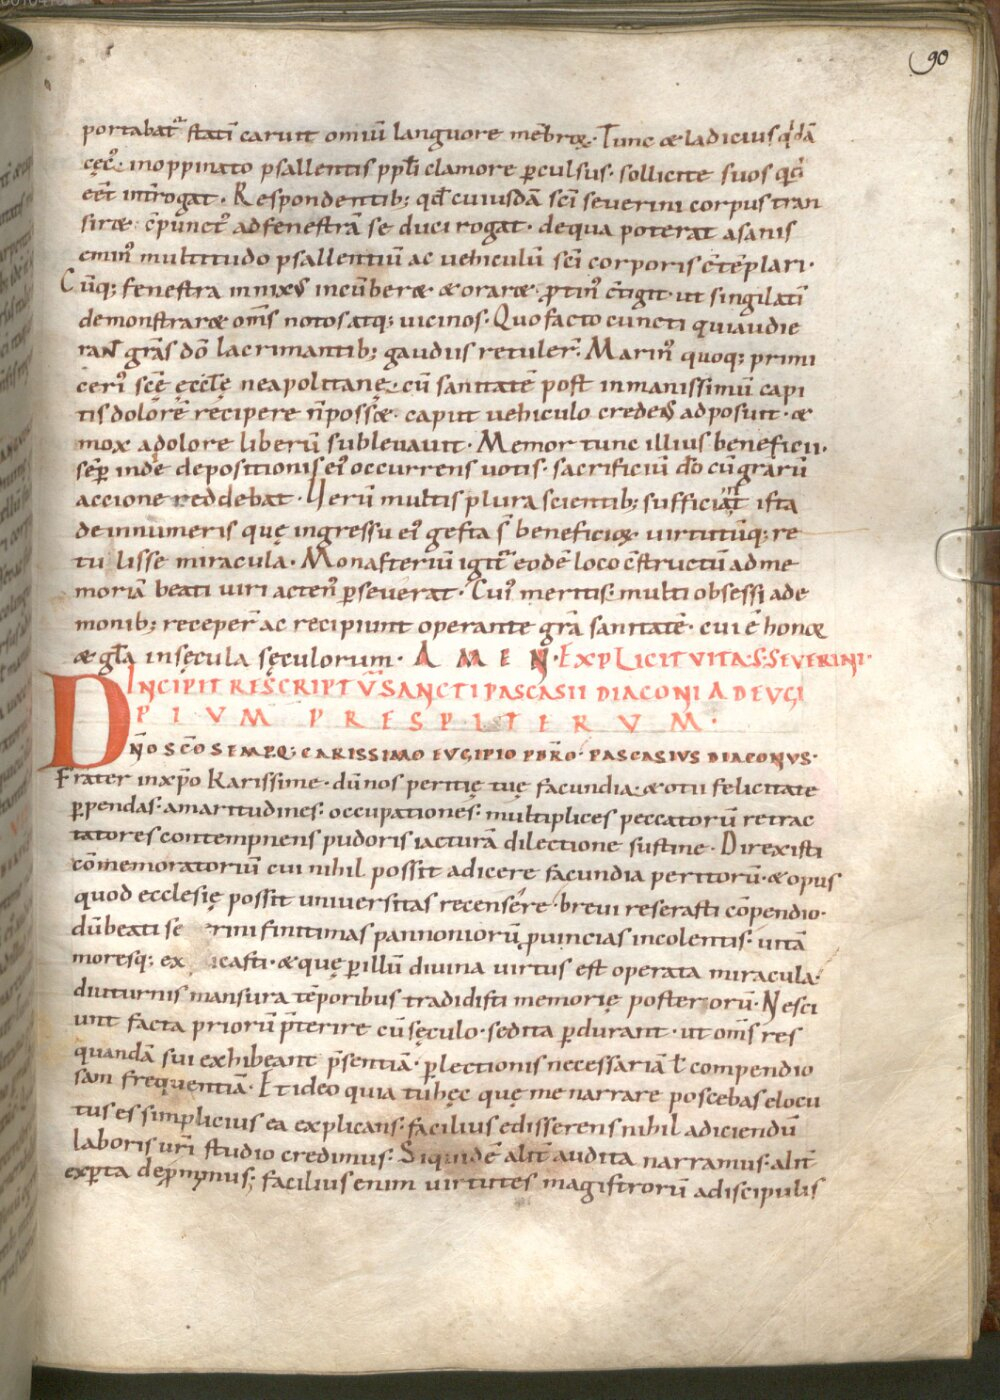 90
portabat᷑ statī caruit omiū languore mēbroꝝ. Tunc & ladicius qdā
cęcꝰ. inoppinato psallentis ppli clamore ꝑculsus. sollicite suos qd
eēt introgat. Respondentib; qd̄ cuiusdā sc̄i severini corpus tran
sir&. cp̄unctꝰ ad fenestrā se duci rogat. de qua poterat a sanis
eminꝰ multitudo psallentiū ac vehiculū sc̄i corporis c̄tēplari.
Cūq; fenestra innixus incūber& & orar&. ꝓtinꝰ c̄tigit. ut singilatī
demonstrar& om̄s notos atq; vicinos. Quo facto cuncti qui audie
rant grās dō lacrimantib; gaudiis retuler. Marinꝰ quoq; primi
cerꝰ scę ęcclę neapolitanę. cū sanitatē post inmanissimū capi
tis dolorē recipere n̄ poss&. caput vehiculo credens adposuit. &
mox a dolore liberū sublevavit. Memor tunc illius beneficii.
semꝑ inde depositionis eiꝰ occurrens votis. sacrificiū dō cū grarū
accione reddebat. Uerū multis plura scientib; sufficiat ista
de innumeris quę ingressu eiꝰ gesta s̄ beneficioꝝ virtutūq; re
tulisse miracula. Monasteriū igit᷑ eodē loco c̄structū ad me
moriā beati viri actenꝰ ꝑseverat. Cuiꝰ meritis. multi obsessi a de
monib; receper ac recipiunt operante grā sanitatē. cui ē honoꝛ
& glā in sęcula sęculorum. AMEN. EXPLICIT VITA. S. SEVERINI.
INCIPIT RESCRIPTŪ SANCTI PASCASII DIACONI AD EUGI
PIVM PRESPITERVM.
DN̄O SC̄O SEMPQ; CARISSIMO EUGIPIO PBR̄O. PASCASIVS DIACONVS.
Frater in xp̄o Karissime. dū nos peritię tuę facundia. & otii felicitate
ꝑpendas. amaritudines. occupationes. multiplices peccatorū retrac
tatores contempnens pudoris iacturā dilectione sustine. Direxisti
cōmemoratoriū cui nihil possit adicere facundia peritorū. & opus
quod ecclesię possit universitas recensere. brevi reserasti cōpendio.
dū beati se rini finitimas pannoniorū ꝓvincias incolentis. vitā
moresq; ex icasti. & quę ꝑ illū divina virtus est operata miracula.
diuturnis mansura tēporibus tradidisti memorię posterorū. Nesci
unt facta priorū p̄terire cū sęculo. sed ita ꝑdurant. ut om̄s res
quandā sui exhibeant p̄sentiā. ꝑ lectionis necessariā ł compendio
sam frequentiā. Et ideo quia tu hęc quę me narrare poscebas elocu
tus es simplicius ea explicans. facilius edisserens nihil adiciendū
laboris vr̄i studio credimus. Siquidē alit̄ audita narramus. alit̄
exꝑta depromimus; facilius enim virtutes magistrorū a discipulis